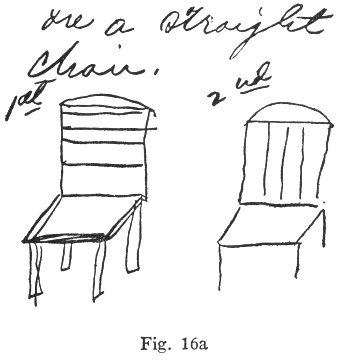 are a straight
chair.
1st 2nd
Fig. 16a